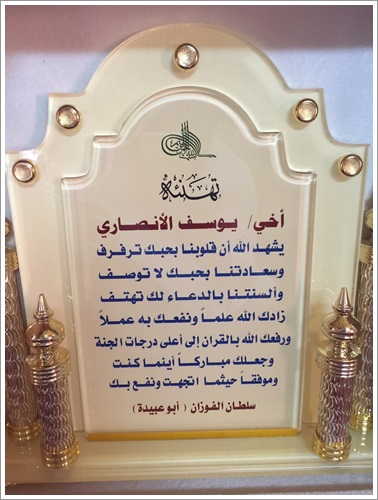 تهنئة
أخي/ يوسف الأنصاري
يشهد الله أن قلوبنا بحبك ترفرف
وسعادتنا بحبك لا توصف
وألسنتنا بالدعاء لك تهتف
زادك الله علماً ونفعك به عملاً
ورفعك الله بالقران إلى أعلى درجات الجنة
وجعلك مباركاً أينما كنت
وموفقاً حيثما اتجهت ونفع بك
سلطان الفوزان ( أبو عبيدة )